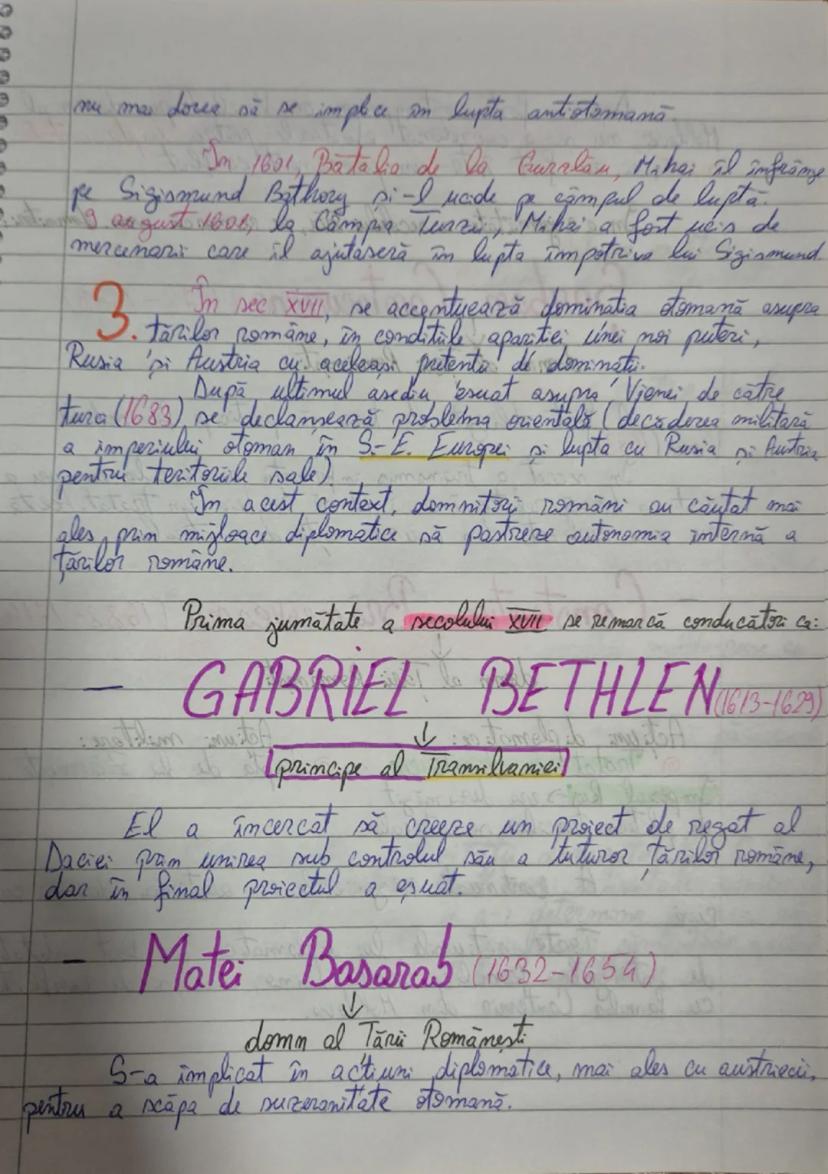 nu mai dorea să se implice în lupta antiotomană.
În 1601, Bătălia de la Gurulău, Mihai îl înfrânge
pe Sigismund Báthory și-l ucide pe câmpul de luptă.
9 august 1601, la Câmpia Turzii, Mihai a fost ucis de
mercenarii care îl ajutaseră în lupta împotriva lui Sigismund
3. În sec XVII, se accentuează dominația otomană asupra
țărilor române, în condițiile apariției unei noi puteri,
Rusia și Austria cu aceleași pretenții de dominații.
După ultimul asediu eșuat asupra Vienei de către
turci (1683) se declanșează problema orientală (decăderea militară
a imperiului otoman în S-E. Europei și lupta cu Rusia și Austria
pentru teritoriile sale)
În acest context, domnitorii români au căutat mai
ales prin mijloace diplomatice să păstreze autonomia internă a
țărilor române.
Prima jumătate a secolului XVII se remarcă conducători ca:
— GABRIEL BETHLEN (1613-1629)
↓
principe al Transilvaniei
El a încercat să creeze un proiect de regat al
Daciei prin unirea sub controlul său a tuturor țărilor române,
dar în final proiectul a eșuat.
- Matei Basarab (1632-1654)
↓
domn al Țării Românești
S-a implicat în acțiuni diplomatice, mai ales cu austriecii,
pentru a scăpa de suzeranitate otomană.